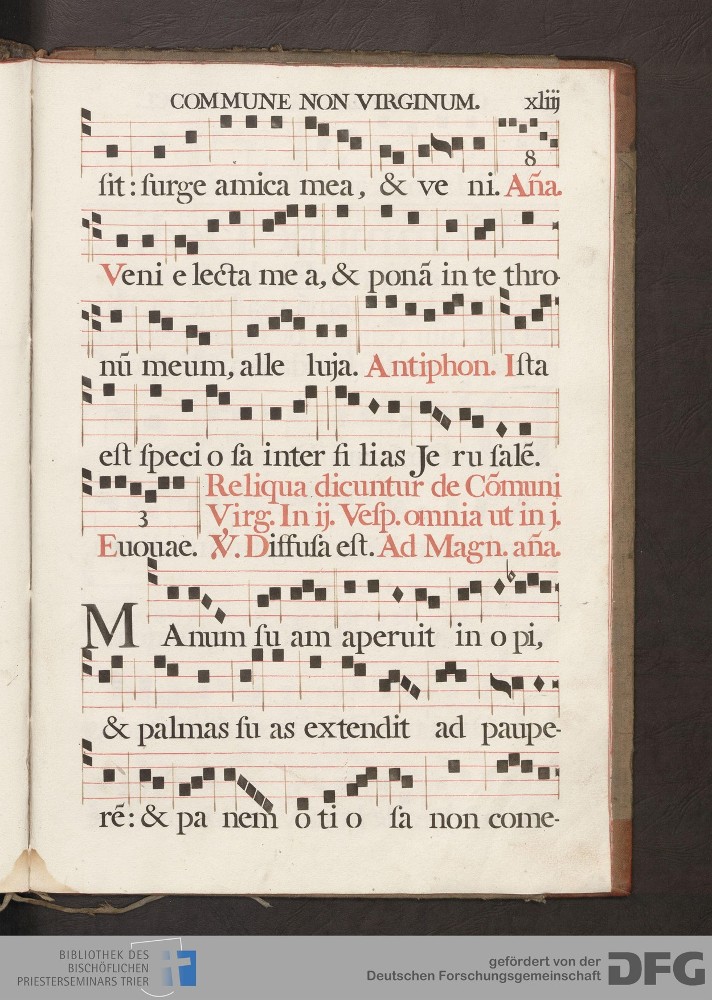 COMMUNE NON VIRGINUM. xliij
8
sit: surge amica mea, & ve ni. Aña.
Veni e lecta me a, & ponã in te thro-
nũ meum, alle luja. Antiphon. Ista
est speci o sa inter fi lias Je ru salẽ.
Reliqua dicuntur de Cõmuni
3 Virg. In ij. Vesp. omnia ut in j.
Euouae. ℣. Diffusa est. Ad Magn. aña.
MAnum su am aperuit in o pi,
& palmas su as extendit ad paupe-
rẽ: & pa nem o ti o sa non come-
BIBLIOTHEK DES
BISCHÖFLICHEN
PRIESTERSEMINARS TRIER
gefördert von der
Deutschen Forschungsgemeinschaft DFG